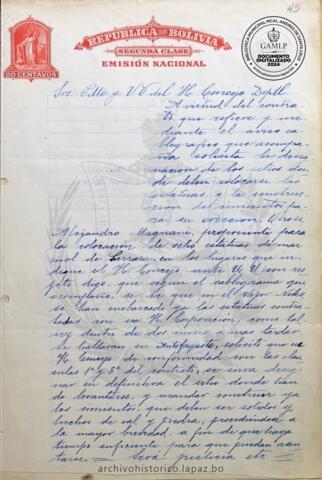 45
REPUBLICA DE BOLIVIA
SEGUNDA CLASE
EMISIÓN NACIONAL
20 CENTAVOS
BIBLIOTECA MUNICIPAL MCAL. ANDRES DE SANTA CRUZ
GAMLP
DOCUMENTO
DIGITALIZADO
2024
Srs. Pdte y VV del H Concejo Deptl.
A virtud del contra
to que refiere y me
diante el aviso ca
blografico que acompa
ña solicita la desig
nacion de los sitios don
de deben colocarse las
estatuas
para su
Alejandro proponente para
la colocacion de ocho estatuas de mar
mol de Carrara, en los lugares que in
dique el H Concejo ante U U con res
peto digo: que segun el cablegrama que
acompaño, se ve que en el vapor
se han embarcado las estatuas contra
tadas con esa H Corporación; como tal
vez dentro de dos meses a mas tardar
se hallaran en Antofagasta, solicito que ese
H Concejo de conformidad con las clau
sulas 1ª y 8ª del contrato, se sirva desig
nar en definitiva el sitio donde han
de levantarse, y mandar construir ya
los cimientos, que deben ser solidos y
hechos de cal y piedra, procediendo a
la mayor brevedad, a fin de que haya
tiempo suficiente para que puedan asen
tarse. — Sera justicia etc —
archivohistorico.lapaz.bo